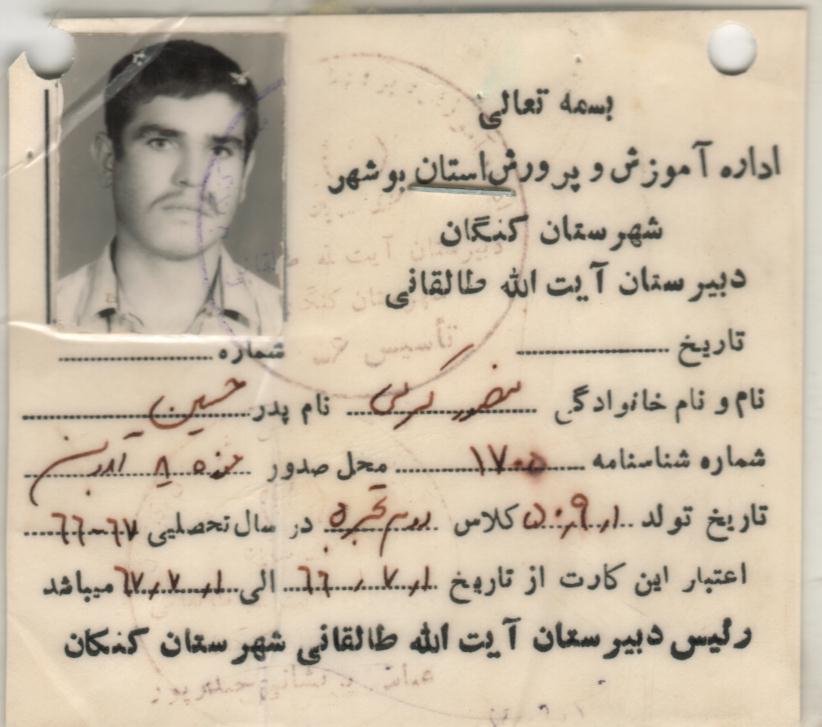 بسمه تعالی
اداره آموزش و پرورش استان بوشهر
شهرستان کنگان
دبیرستان آیت الله طالقانی
تاریخ ............ شماره ............
نام و نام خانوادگی ............ نام پدر حسین
شماره شناسنامه ۱۷۰۵ محل صدور حوزه ۸
تاریخ تولد ۵۰٫۹٫۱ کلاس دوم تجربی در سال تحصیلی ۶۷-۶۶
اعتبار این کارت از تاریخ ۶۶٫۷٫۱ الی ۶۷٫۷٫۱ میباشد
رئیس دبیرستان آیت الله طالقانی شهرستان کنگان
دبیرستان آیت الله طالقانی
شهرستان کنگان
تأسیس